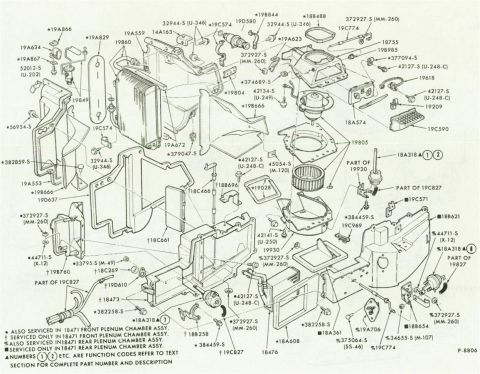 *19A866
19A634
*19A867
52012-S
(U-202)
19849
*19A829
19A559
19860
32944-S (U-346)
14A163
*19C574
*19B844
19D580
32944-S (U-346)
*19A623
*18B488
372927-S (MM-260)
19C774
18755
19B985
*377094-S
42127-S (U-248-C)
19618
372927-S
(MM-260)
*374689-S
*19804
42134-S
(U-249)
*19B666
42127-S
(U-248-C)
18A574
19209
19C590
*56954-S
19C574
19A672
*379047-S
32944-S
(U-346)
*42127-S
(U-248-C)
45054-S
(M-120)
19805
18A318 ▲ 1 2
PART OF
19930
PART OF 19C827
*382859-S
19A553
*19B666
19D637
†18C466
18B696
19D28
*384459-S
19C969
■19C571
■18B621
*372927-S
(MM-260)
†18C661
42141-S
(U-250)
19930
%372927-S
(MM-260)
%44711-S
(X-12)
%18A318 ▲ 8
PART OF
19827
*44711-S
(X-12)
*33795-S (M-49)
†19B760
†18C269
†19D610
PART OF 19C827
†18473
*382258-S
*18A318 ▲ 1
*42127-S
(U-248-C)
†18B258
*372927-S
(MM-260)
*384459-S
†19C827
18476
*382258-S
■18A361
†18A608
%19A706
%375064-S
(SS-46)
%19C774
%34655-S (M-107)
■18B654
%372927-S
(MM-260)
* ALSO SERVICED IN 18471 FRONT PLENUM CHAMBER ASSY.
† SERVICED ONLY IN 18471 FRONT PLENUM CHAMBER ASSY.
% ALSO SERVICED IN 18471 REAR PLENUM CHAMBER ASSY.
■ SERVICED ONLY IN 18471 REAR PLENUM CHAMBER ASSY.
▲ NUMBERS 1 2 ETC. ARE FUNCTION CODES REFER TO TEXT
SECTION FOR COMPLETE PART NUMBER AND DESCRIPTION
P-8806